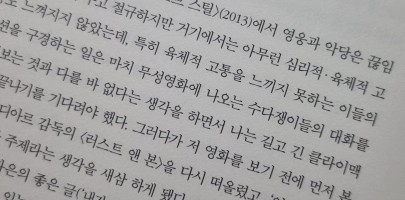 스틸〉(2013)에서 영웅과 악당은 끊임
고 절규하지만 거기에서는 아무런 심리적·육체적 고
도 느껴지지 않았는데, 특히 육체적 고통을 느끼지 못하는 이들의
션을 구경하는 일은 마치 무성영화에 나오는 수다쟁이들의 대화를
보는 것과 다를 바 없다는 생각을 하면서 나는 길고 긴 클라이맥
끝나기를 기다려야 했다. 그러다가 저 영화를 보기 전에 먼저 본
디아르 감독의 〈러스트 앤 본〉을 다시 떠올렸고,
주제라는 생각을 새삼 하게 됐다.
은의 좋은 글('내